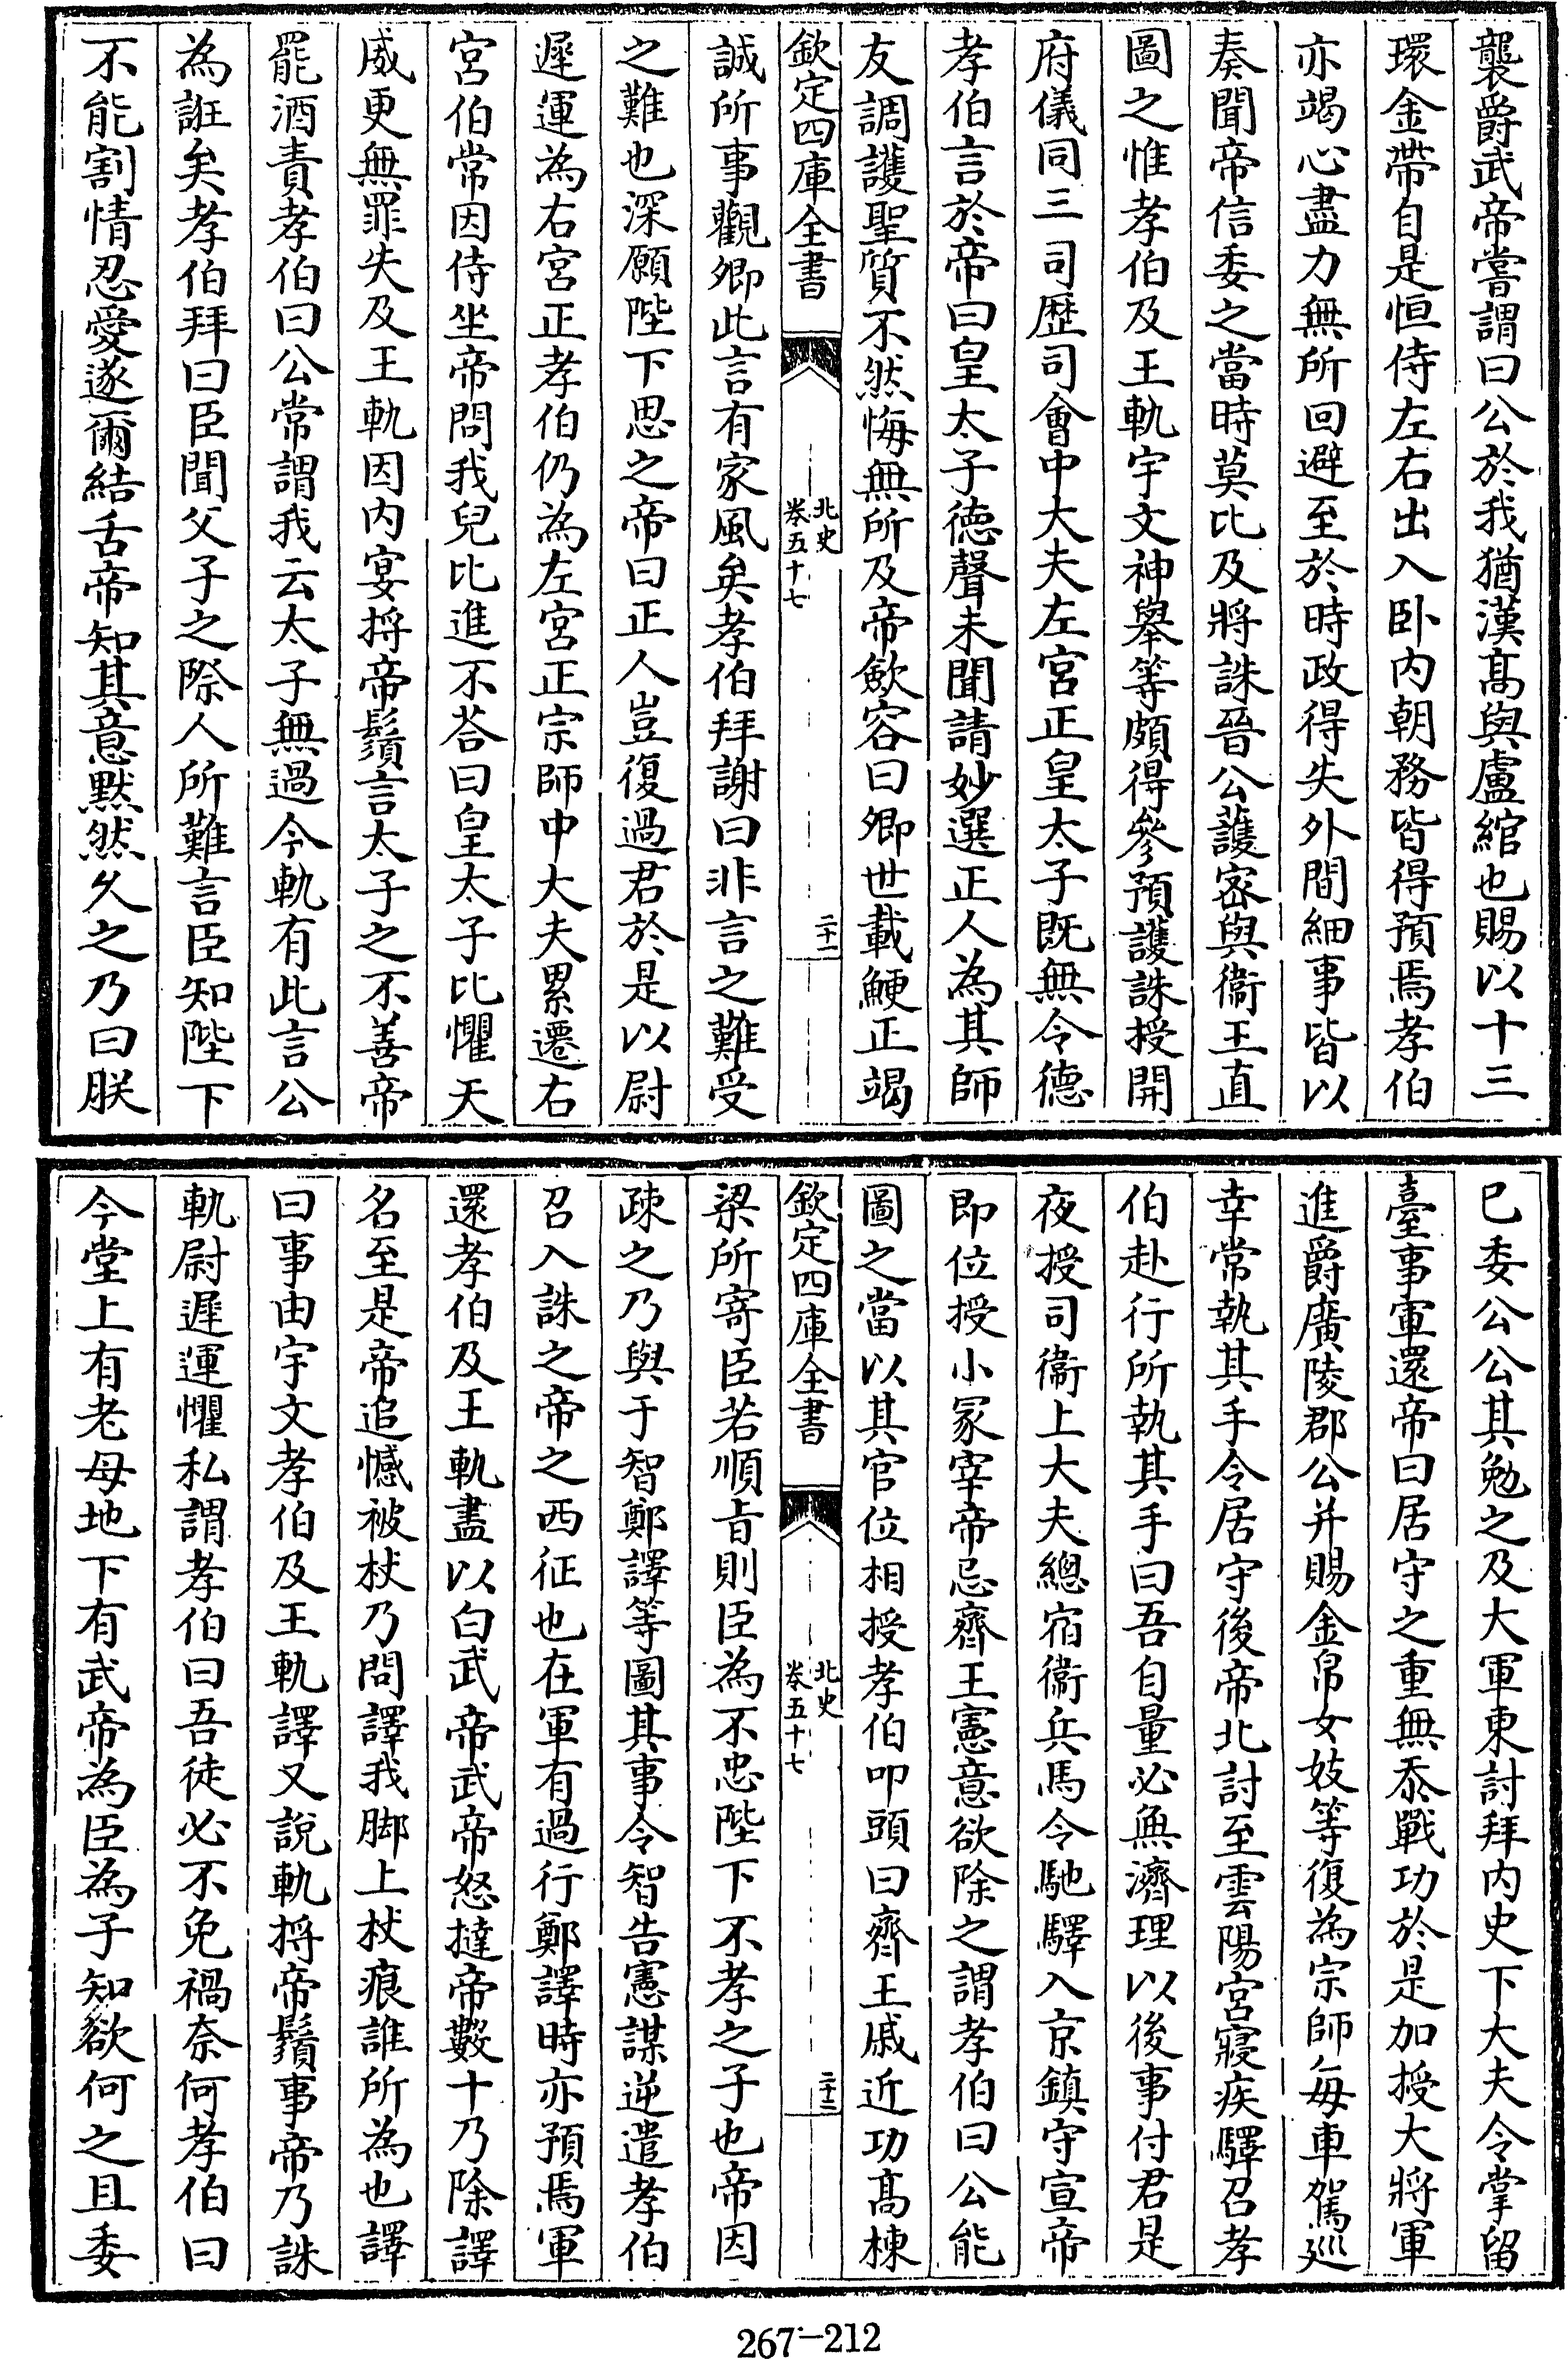 襲爵武帝嘗謂曰公於我猶漢髙與盧綰也賜以十三
環金帶自是恒侍左右出入卧内朝務皆得預焉孝伯
亦竭心盡力無所回避至於時政得失外間細事皆以
奏聞帝信委之當時莫比及將誅晉公䕶宻與衞王直
圖之惟孝伯及王軌宇文神舉等頗得參預䕶誅授開
府儀同三司歴司會中大夫左宮正皇太子既無令德
孝伯言於帝曰皇太子徳聲未聞請妙選正人為其師
友調䕶聖質不然悔無所及帝歛容曰卿世載鯁正竭
欽定四庫全書
北史
卷五十七
二十一
誠所事觀卿此言有家風矣孝伯拜謝曰非言之難受
之難也深願陛下思之帝曰正人豈復過君於是以尉
遲運為右宮正孝伯仍為左宮正宗師中大夫累遷右
宮伯常因侍坐帝問我兒比進不荅曰皇太子比懼天
威更無罪失及王軌因内宴捋帝鬚言太子之不善帝
罷酒責孝伯曰公常謂我云太子無過今軌有此言公
為誑矣孝伯拜曰臣聞父子之際人所難言臣知陛下
不能割情忍愛遂爾結舌帝知其意黙然久之乃曰朕
已委公公其勉之及大軍東討拜内史下大夫令掌留
臺事軍還帝曰居守之重無忝戰功於是加授大將軍
進爵廣陵郡公并賜金帛女妓等復為宗師每車駕巡
幸常執其手令居守後帝北討至雲陽宮寢疾驛召孝
伯赴行所執其手曰吾自量必無濟理以後事付君是
夜授司衞上大夫總宿衞兵馬令馳驛入京鎮守宣帝
即位授小冢宰帝忌齊王憲意欲除之謂孝伯曰公能
圖之當以其官位相授孝伯叩頭曰齊王戚近功髙棟
欽定四庫全書
北史
卷五十七
二十二
梁所寄臣若順㫖則臣為不忠陛下不孝之子也帝因
疎之乃與于智鄭譯等圖其事令智告憲謀逆遣孝伯
召入誅之帝之西征也在軍有過行鄭譯時亦預焉軍
還孝伯及王軌盡以白武帝武帝怒撻帝數十乃除譯
名至是帝追憾被杖乃問譯我脚上杖痕誰所為也譯
曰事由宇文孝伯及王軌譯又説軌捋帝鬚事帝乃誅
軌尉遲運懼私謂孝伯曰吾徒必不免禍奈何孝伯曰
今堂上有老母地下有武帝為臣為子知欲何之且委
267-212